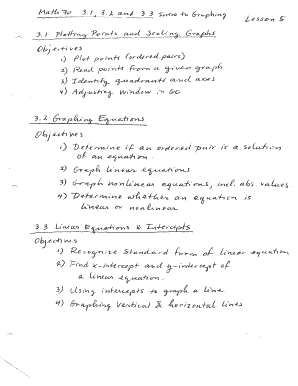 Math 70 3.1, 3.2 and 3.3 Intro to Graphing
Lesson 5
3.1 Plotting Points and Scaling Graphs
Objectives
1) Plot points (ordered pairs)
2) Read points from a given graph
3) Identify quadrants and axes
4) Adjusting Window in GC
3.2 Graphing Equations
Objectives
1) Determine if an ordered pair is a solution
of an equation.
2) Graph linear equations
3) Graph nonlinear equations, incl. abs. values
4) Determine whether an equation is
linear or nonlinear
3.3 Linear Equations & Intercepts
Objectives
1) Recognize Standard form of linear equation
2) Find x-intercept and y-intercept of
a linear equation.
3) Using intercepts to graph a line
4) Graphing Vertical & horizontal lines